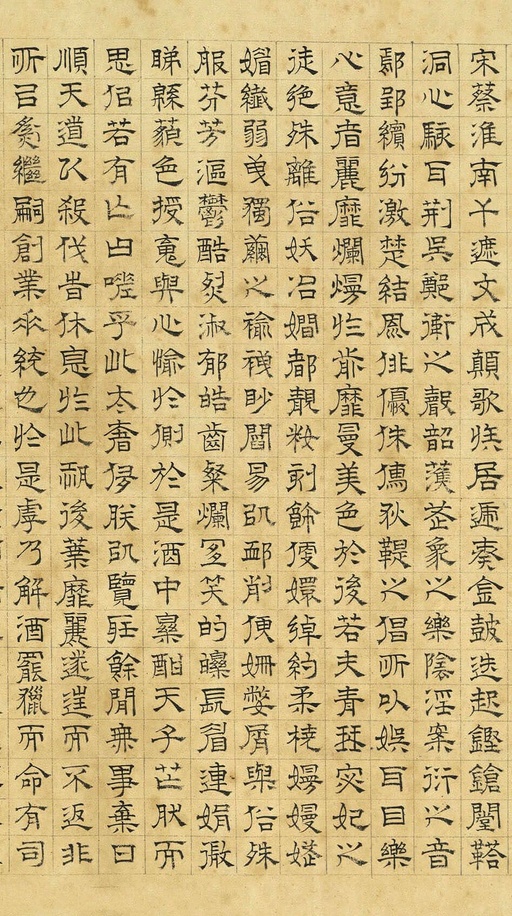 宋蔡淮南干遮文成顛歌族居遞奏金鼓迭起鏗鎗闛鞈
洞心駭耳荊吳鄭衛之聲韶濩武象之樂陰淫案衍之音
鄢郢繽紛激楚結風俳優侏儒狄鞮之倡所以娛耳目樂
心意者麗靡爛熳於前靡曼美色於後若夫青琴宓妃之
徒絕殊離俗妖冶嫺都靚粧刻飾便嬛綽約柔橈嫚嫚嫵
媚纖弱曳獨繭之褕袣眇閻易以卹削便姍嫳屑與俗殊
服芬芳漚鬱酷烈淑郁皓齒粲爛宜笑的皪長眉連娟微
睇緜藐色授魂與心愉於側於是酒中樂酣天子芒然而
思似若有亡曰嗟乎此太奢侈朕以覽聽餘閒無事棄日
順天道以殺伐時休息於此恐後葉靡麗遂往而不返非
所以為繼嗣創業垂統也於是乎乃解酒罷獵而命有司